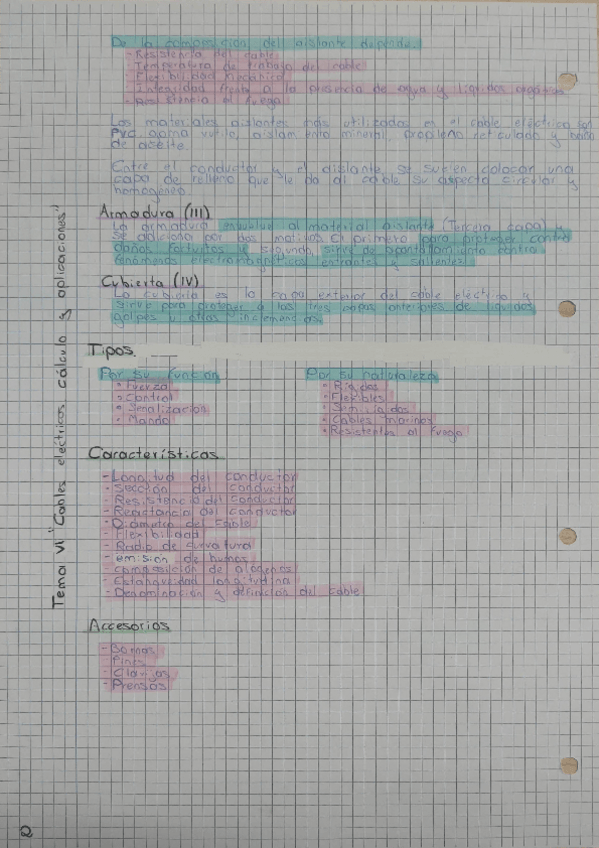 De la composición del aislante depende:
- Resistencia del cable
- Temperatura de trabajo del cable
- Flexibilidad mecánica
- Intensidad frente a la presencia de agua y líquidos orgánicos
- Resistencia al fuego
Los materiales aislantes más utilizados en el cable eléctrico son
PVC, goma, aislamiento mineral, propileno reticulado y
de aceite.
Entre el conductor y el aislante, se suelen colocar una
capa de relleno que le da al cable su aspecto circular y
homogéneo.
Armadura (III)
La armadura envuelve al material aislante (Tercera capa) y
se adiciona por dos motivos. El primero para proteger contra
daños y segundo, sirve de contra
fenómenos electromagnéticos entrantes y salientes.
Cubierta (IV)
La cubierta es la capa exterior del cable eléctrico y
sirve para proteger a las tres capas anteriores de líquidos
golpes u otras inclemencias.
Tipos.
Por su función
• Fuerza
• Control
• Señalización
• Mando
Por su naturaleza
• Rígidos
• Flexibles
• Semirígidos
• Cables marinos
• Resistentes al fuego
Características
- Longitud del conductor
- Sección del conductor
- Resistencia del conductor
- Reactancia del conductor
- Diámetro del cable
- Flexibilidad
- Radio de curvatura
- emisión de humos
- composición de
- Estanqueidad longitudina
- Denominación y definición del cable
Accesorios
- Bornas
- Pines
- Clavijas
- Prensas
Tema VI "Cables eléctricos cálculo y aplicaciones"
2